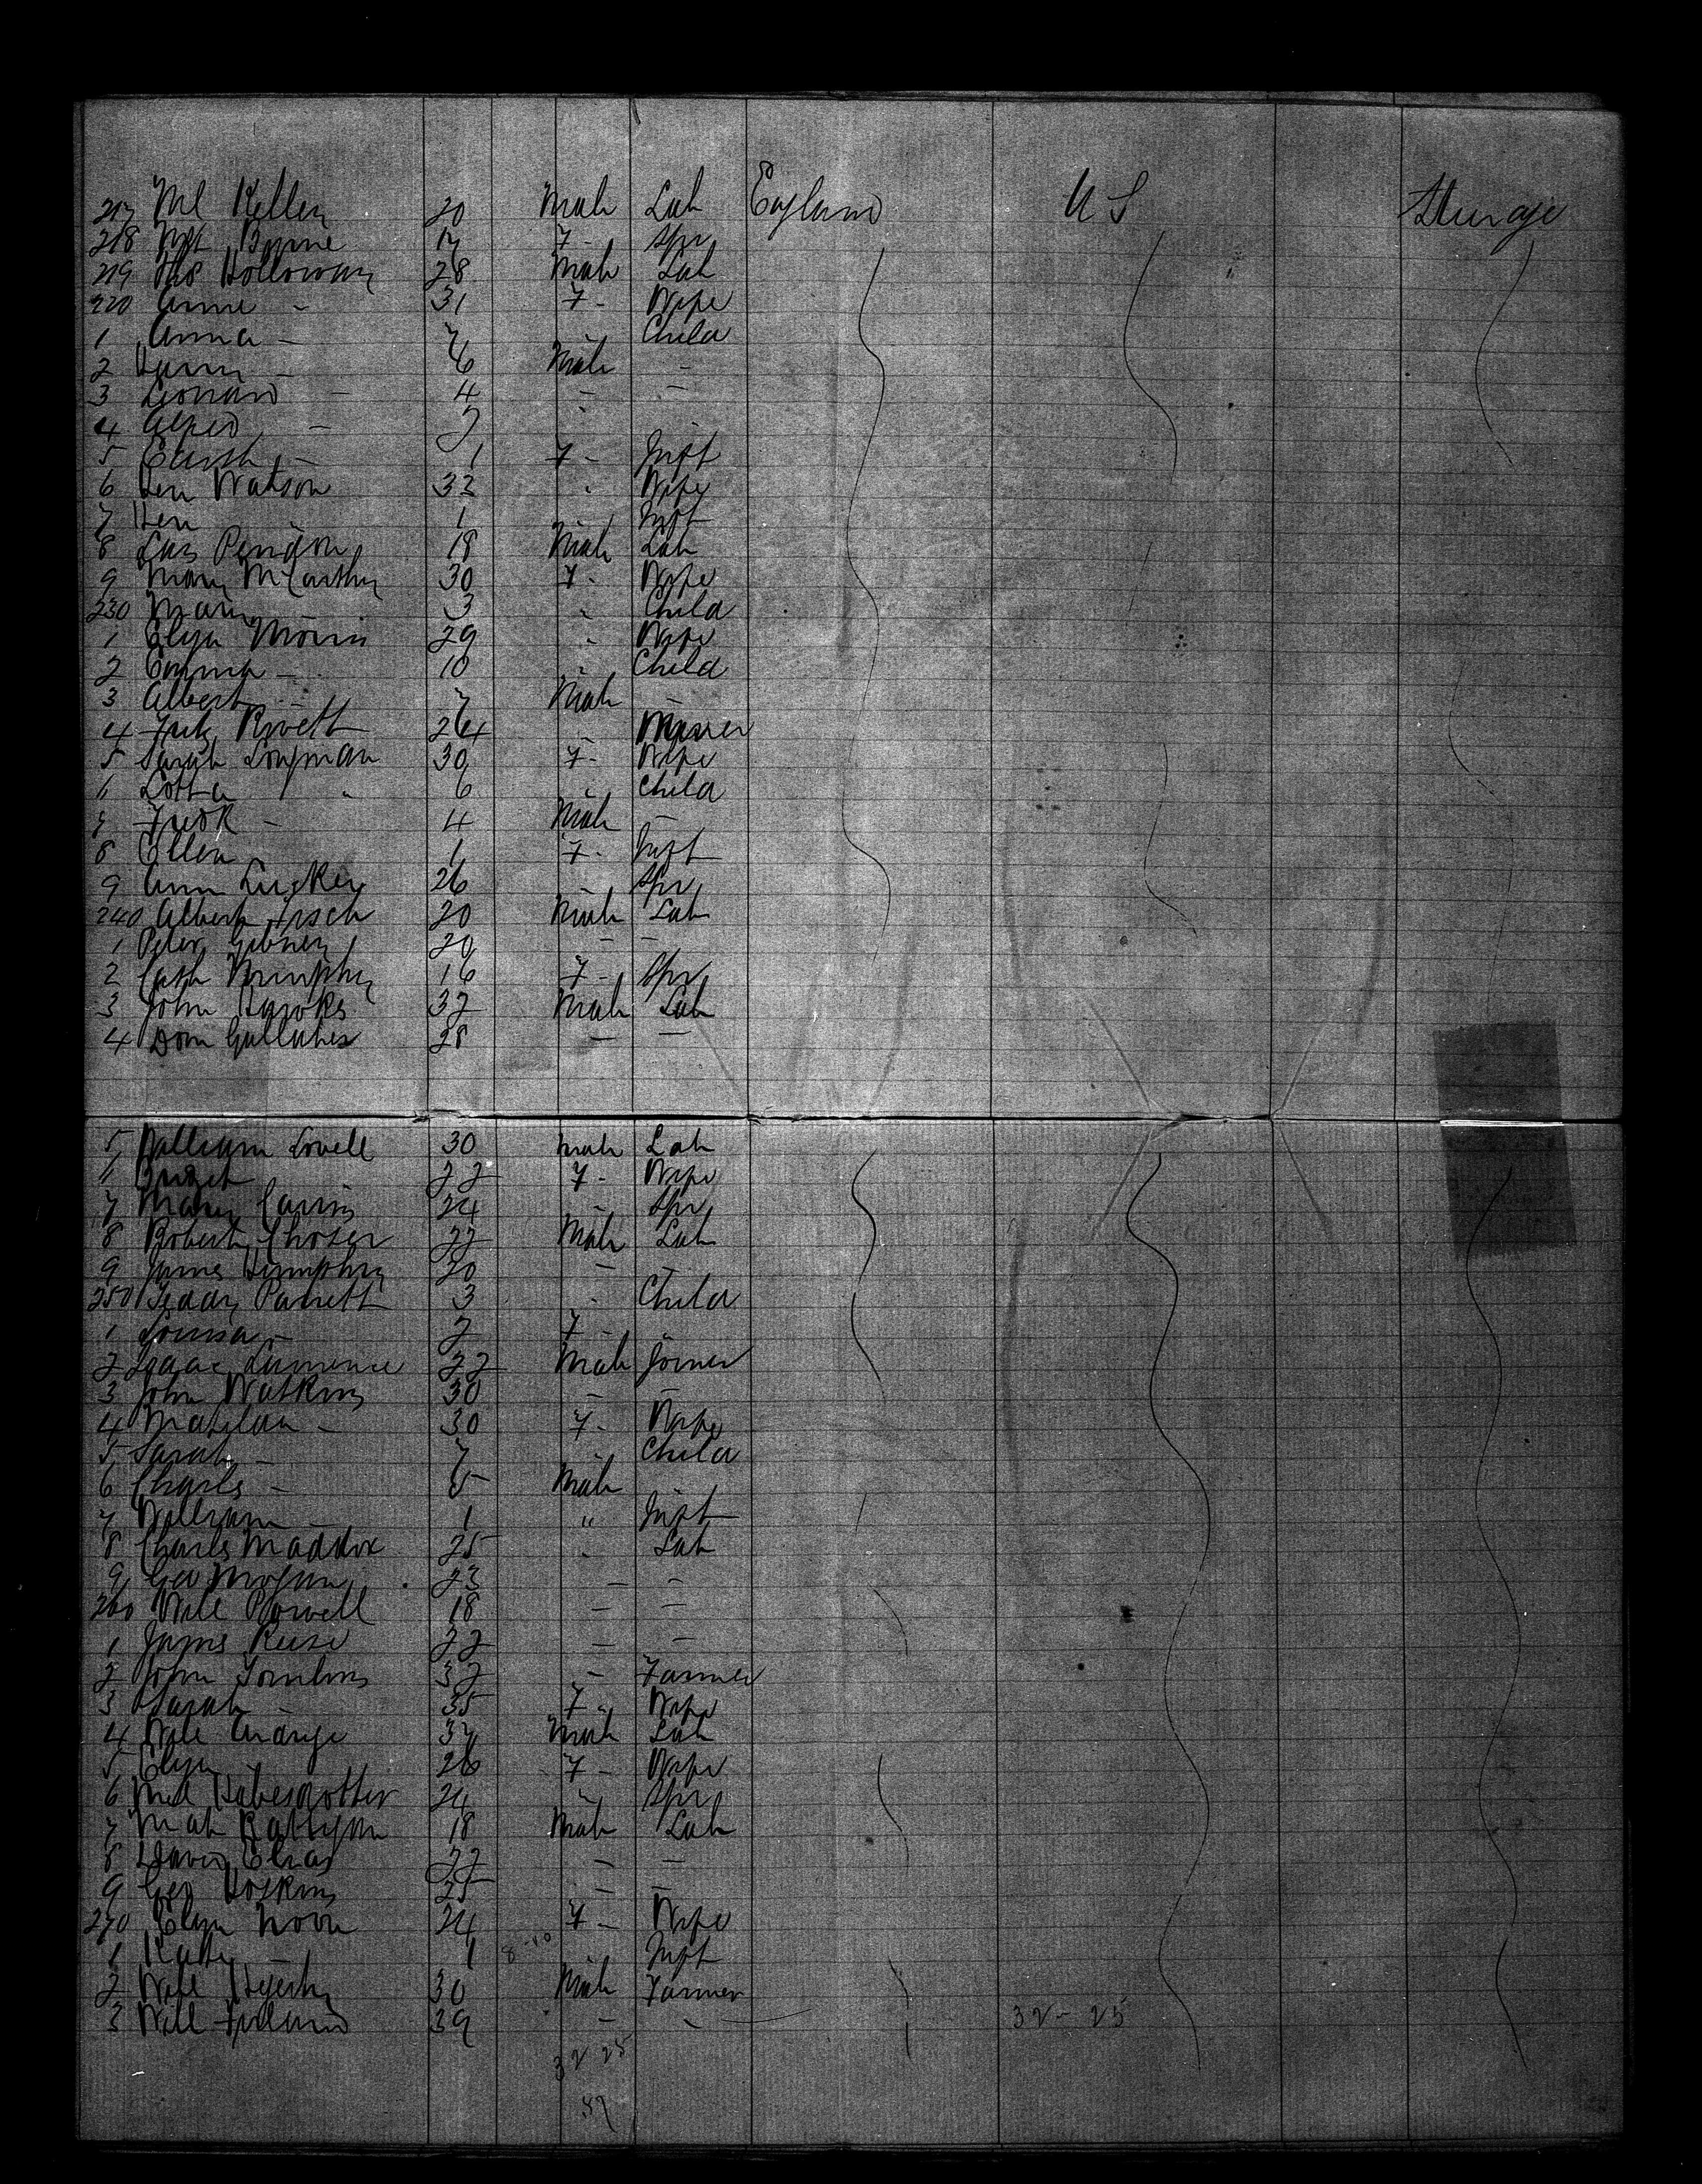 217 Ml Kellen 20 Male Lab England U S Steerage
218 Mgt Byrne 17 F - Spr
219 Thos Holloway 28 Male Lab
220 Anne - 31 F - Wife
1 Anna - 7 - Child
2 Harry - 6 Male -
3 Leonard - 4 - -
4 Alfred - 2 - -
5 - 1 F - Inft
6 Watson 33 - Wife
7 1 Inft
8 18 Male Lab
9 Mary McCarthy 30 F - Wife
230 Mary 3 - Child
1 Eliza Morris 29 - Wife
2 Emma - 10 - Child
3 Albert - 7 Male -
4 Fredk Rivett 24 -
5 Sarah Longman 30 F - Wife
6 Lotta " 6 - Child
7 Fredk - 4 Male -
8 Ellen - 1 F - Inft
9 Ann 26 - Spr
240 Albert 20 Male Lab
1 Peter Gibney 20 - -
2 Cath Murphy 16 F - Spr
3 John Hawks 32 Male Lab
4 Dom Gallaher 28 - -
5 William Lovell 30 Male Lab
6 Bridget 22 F - Wife
7 Mary 24 - Spr
8 Robert 22 Male Lab
9 James Humphry 20 - -
250 Teddy Parrett 3 - Child
1 Louisa - 2 F - -
2 Isaac Lawrence 22 Male Joiner
3 John Watkins 30 - -
4 Matilda - 30 F - Wife
5 Sarah - 7 - Child
6 Charls - 5 Male
7 William - 1 " Inft
8 Charls Maddox 25 - Lab
9 Geo Morgan 23 - -
260 Will Powell 18 - -
1 James Reese 22 - -
2 John Tomlins 32 - Farmer
3 Sarah - 35 F - Wife
4 Will 37 Male Lab
5 Eliza 26 F - Wife
6 24 - Spr
7 18 Male Lab
8 David Elias 22 - -
9 Geo Hoskins 25 - -
270 Eliza 24 F - Wife
1 Katty - 1 8-10 - Inft
2 Will 30 Male Farmer
3 Will 39 - - 32-25
32 25
57